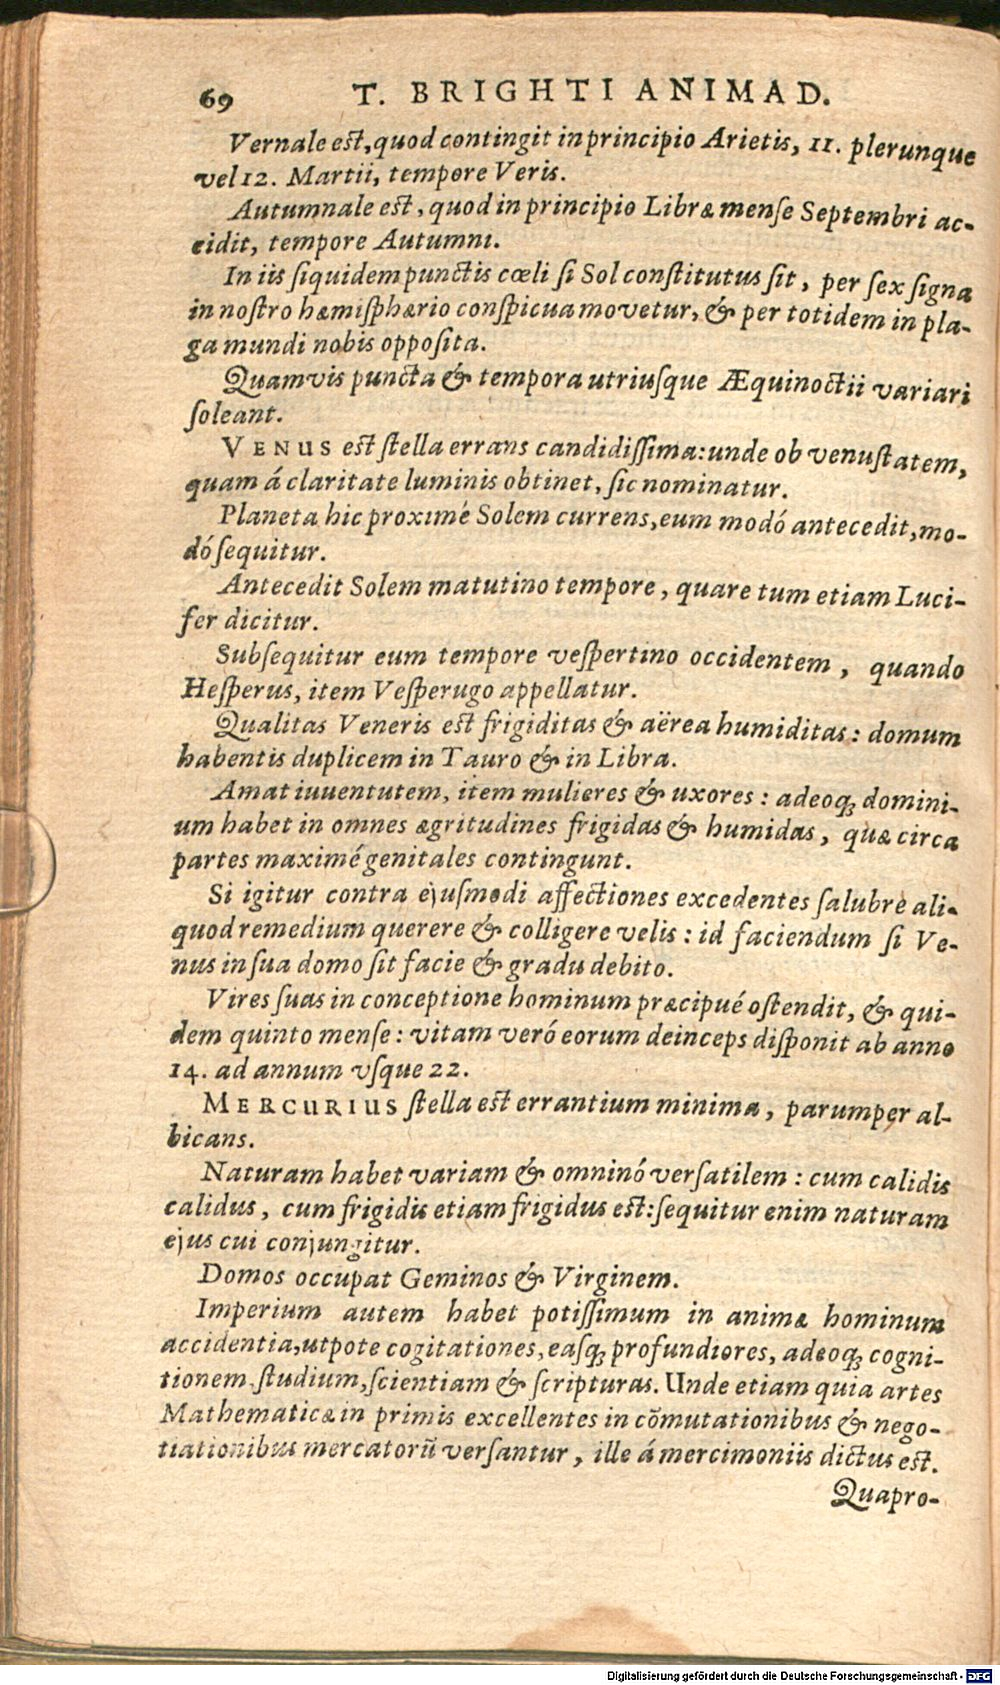 69 T. BRIGHTI ANIMAD.
Vernale est, quod contingit in principio Arietis, 11. plerunque
vel 12. Martii, tempore Veris.
Autumnale est, quod in principio Libræ mense Septembri ac-
cidit, tempore Autumni.
In iis siquidem punctis cœli si Sol constitutus sit, per sex signa
in nostro hæmisphærio conspicua movetur, & per totidem in pla-
ga mundi nobis opposita.
Quamvis puncta & tempora utriusque Æquinoctii variari
soleant.
VENUS est stella errans candidissima: unde ob venustatem,
quam á claritate luminis obtinet, sic nominatur.
Planeta hic proximé Solem currens, eum modó antecedit, mo-
dó sequitur.
Antecedit Solem matutino tempore, quare tum etiam Luci-
fer dicitur.
Subsequitur eum tempore vespertino occidentem, quando
Hesperus, item Vesperugo appellatur.
Qualitas Veneris est frigiditas & aërea humiditas: domum
habentis duplicem in Tauro & in Libra.
Amat iuventutem, item mulieres & uxores: adeoq; domini-
um habet in omnes ægritudines frigidas & humidas, quæ circa
partes maximé genitales contingunt.
Si igitur contra ejusmodi affectiones excedentes salubre ali-
quod remedium querere & colligere velis: id faciendum si Ve-
nus in sua domo sit facie & gradu debito.
Vires suas in conceptione hominum præcipué ostendit, & qui-
dem quinto mense: vitam veró eorum deinceps disponit ab anno
14. ad annum vsque 22.
MERCURIUS stella est errantium minima, parumper al-
bicans.
Naturam habet variam & omninó versatilem: cum calidis
calidus, cum frigidis etiam frigidus est: sequitur enim naturam
ejus cui conjungitur.
Domos occupat Geminos & Virginem.
Imperium autem habet potissimum in animæ hominum
accidentia, utpote cogitationes, easq; profundiores, adeoq; cogni-
tionem, studium, scientiam & scripturas. Unde etiam quia artes
Mathematicæ in primis excellentes in cōmutationibus & nego-
tiationibus mercatorũ versantur, ille á mercimoniis dictus est.
Quapro-
Digitalisierung gefördert durch die Deutsche Forschungsgemeinschaft - DFG